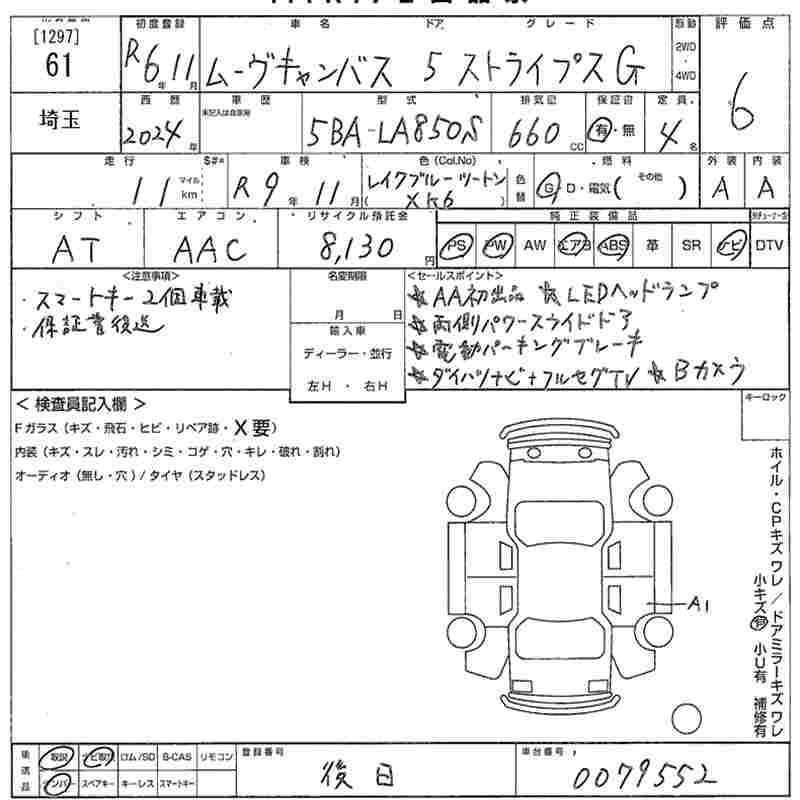 [1297]
61
初度登録 車名 ドア グレード 駆動 評価点
R 6年 11月 ムーヴキャンバス 5 ストライプス G 2WD 4WD 6
埼玉
西暦 車歴 型式 排気量 保証書 定員
2024年 未記入は自家用 5BA-LA850S 660cc 有・無 4名
走行 $#* 車検 色(Col.No) 燃料 外装 内装
11 マイル km R 9年 11月 レイクブルーツートン (XK6) 色替 G D・電気( その他 ) A A
シフト エアコン リサイクル預託金 純正装備品
AT AAC 8,130円 PS PW AW エアB ABS 革 SR ナビ DTV
<注意事項> 名変期限 <セールスポイント>
・スマートキー2個車載 月 日 ★AA初出品 ★LEDヘッドランプ
・保証書後送 輸入車 ★両側パワースライドドア
ディーラー・並行 ★電動パーキングブレーキ
左H・右H ★ダイハツナビ+フルセグTV ★Bカメラ
<検査員記入欄> キーロック
Fガラス(キズ・飛石・ヒビ・リペア跡・X要)
内装(キズ・スレ・汚れ・シミ・コゲ・穴・キレ・破れ・割れ)
オーディオ(無し・穴)/タイヤ(スタッドレス)
A1
ホイル・CPキズワレ/ドアミラーキズワレ
小キズ有 小U有 補修有
後送品 取説 ナビ取説 ロム/SD B-CAS リモコン 登録番号 車台番号
ナンバー スペアキー キーレス スマートキー 後日 0079552